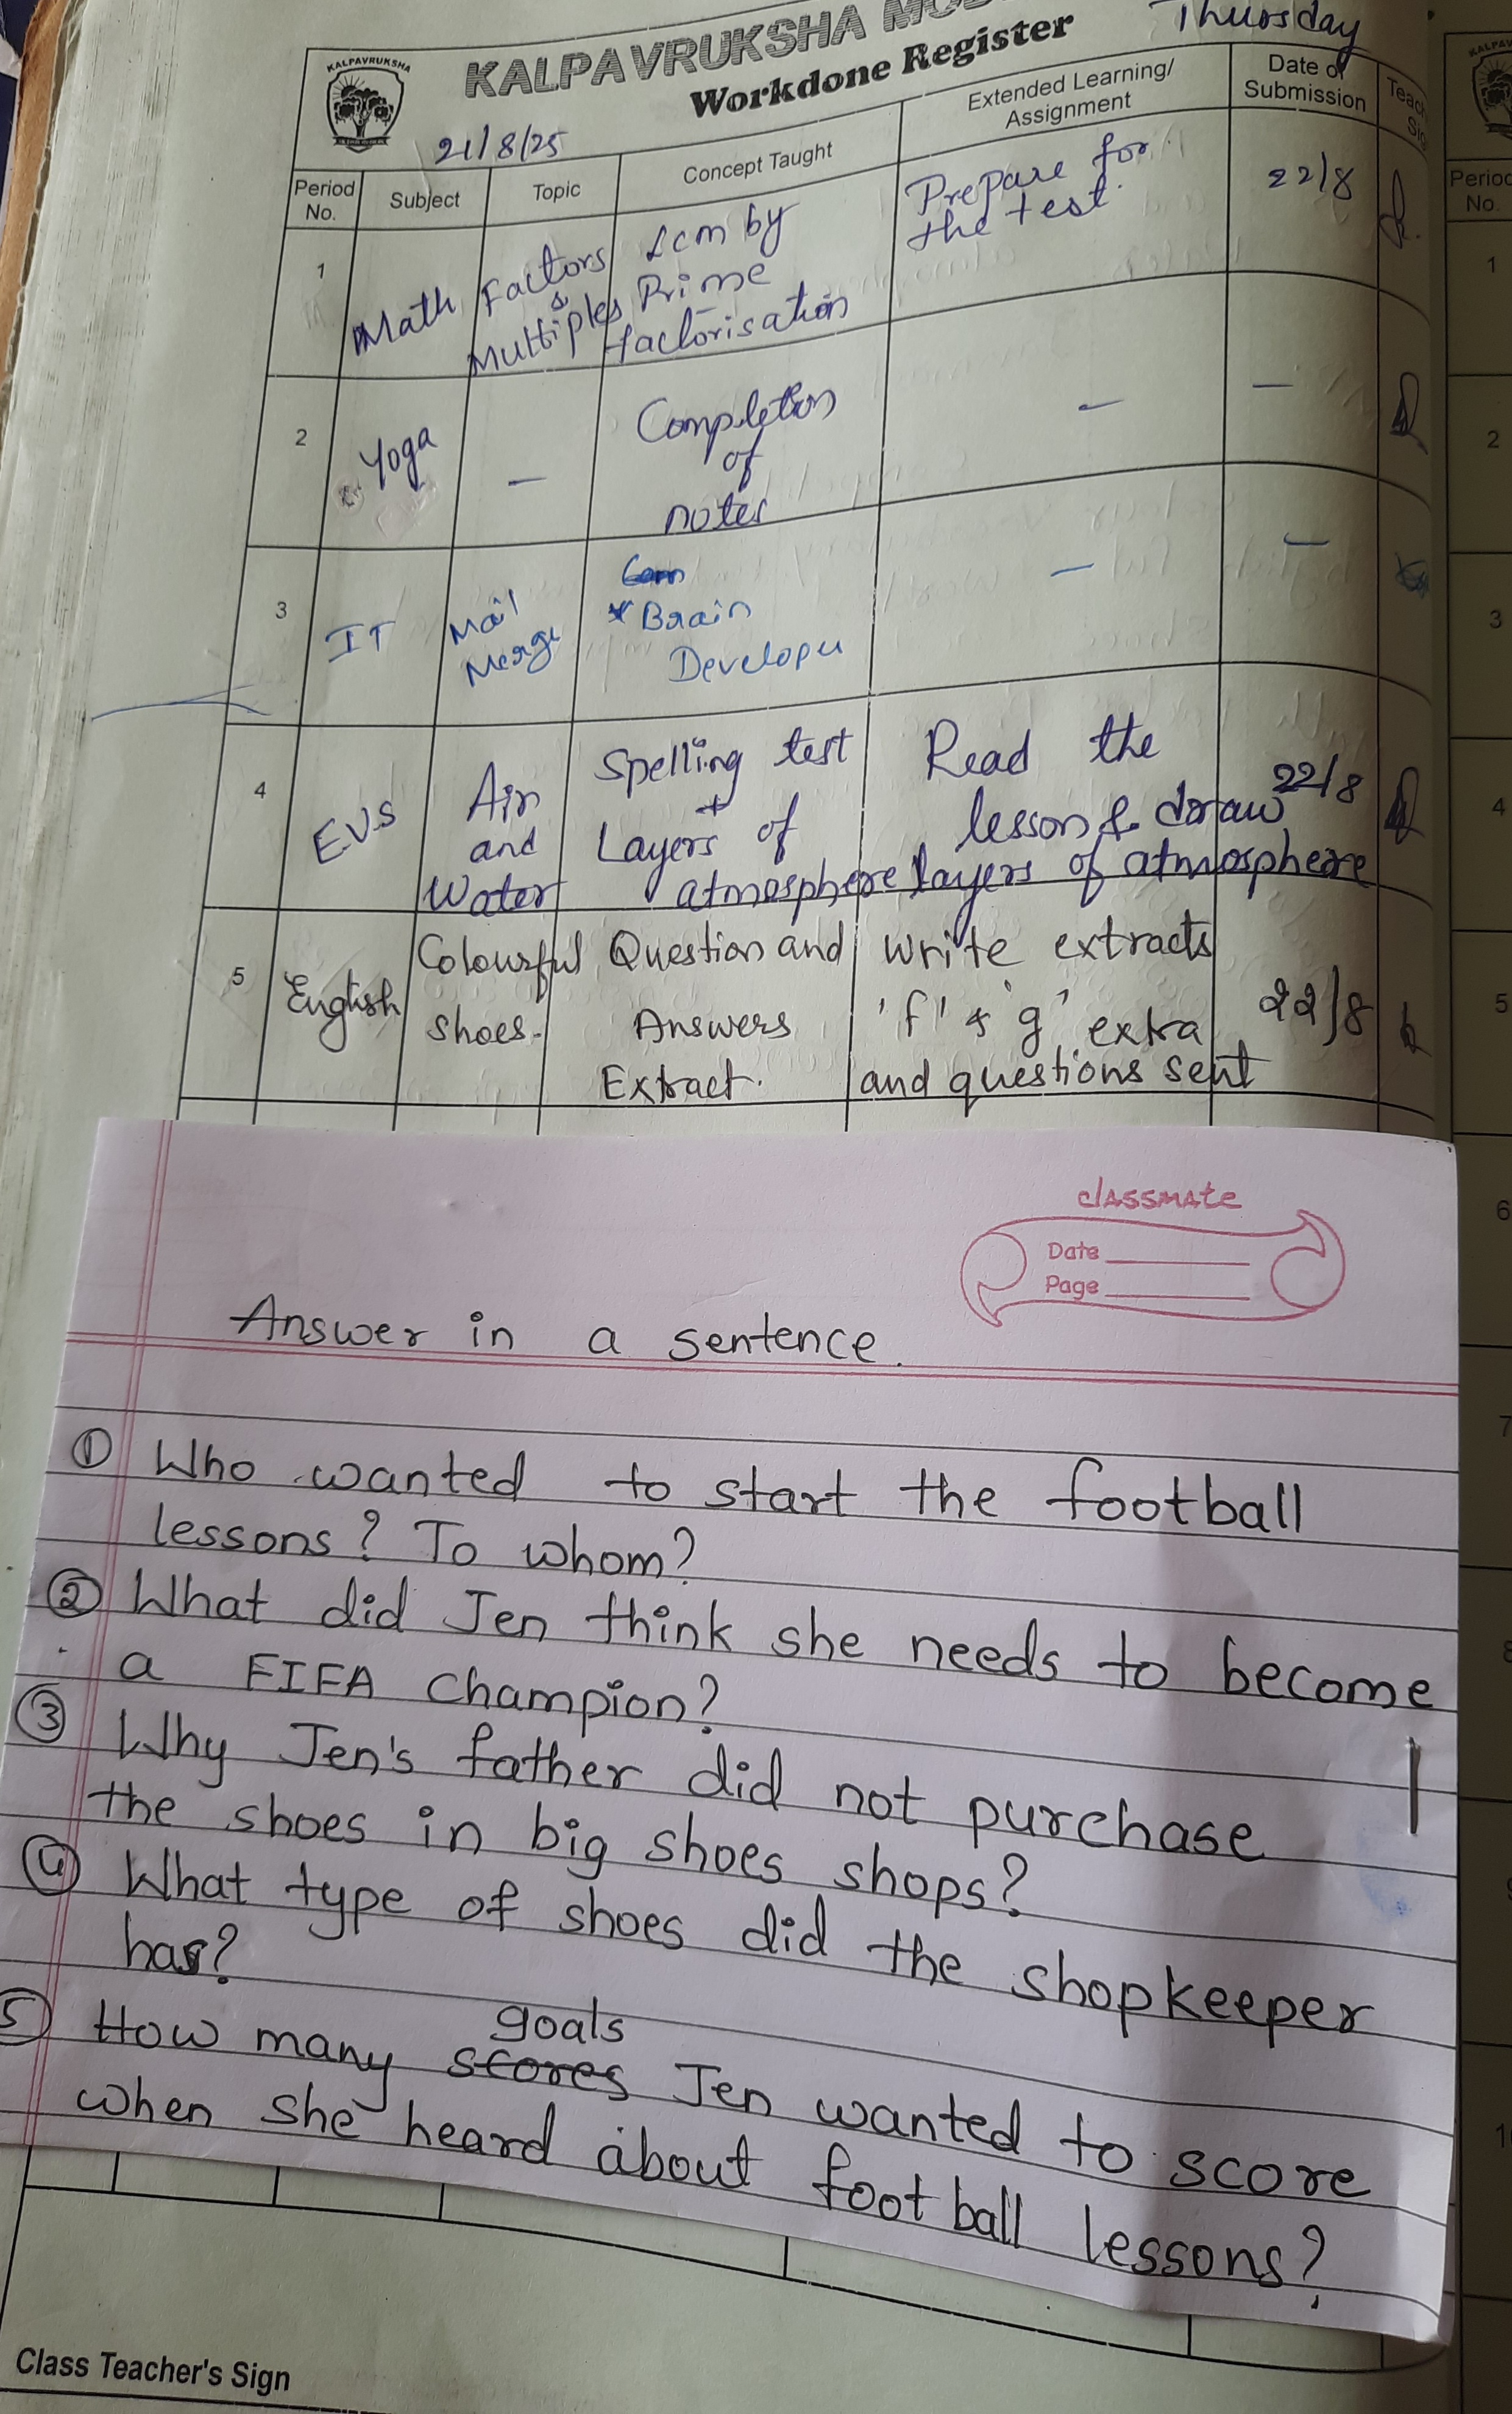 Thursday
KALPAVRUKSHA
KALPAVRUKSHA
Workdone Register
21/8/25
Period No.
Subject
Topic
Concept Taught
Extended Learning/
Assignment
Date of
Submission
1
Math
Factors
&
Multiples
Lcm by
Prime
factorisation
Prepare for
the test.
22/8
2
Yoga
–
Completion
of
notes
–
–
3
IT
Mail
Merge
* Brain
Developer
–
–
4
EVS
Air
and
Water
Spelling test
+
Layers of
atmosphere
Read the
lesson & draw
layers of atmosphere
22/8
5
English
Colourful
shoes.
Question and
Answers
Extract.
Write extracts
'f' & 'g' extra
and questions sent
22/8
classmate
Date
Page
Answer in a sentence.
① Who wanted to start the football
lessons? To whom?
② What did Jen think she needs to become
a FIFA champion?
③ Why Jen's father did not purchase
the shoes in big shoes shops?
④ What type of shoes did the shopkeeper
has?
goals
⑤ How many scores Jen wanted to score
when she heard about football lessons?
Class Teacher's Sign
Period
No.
1
2
3
4
5
6
7